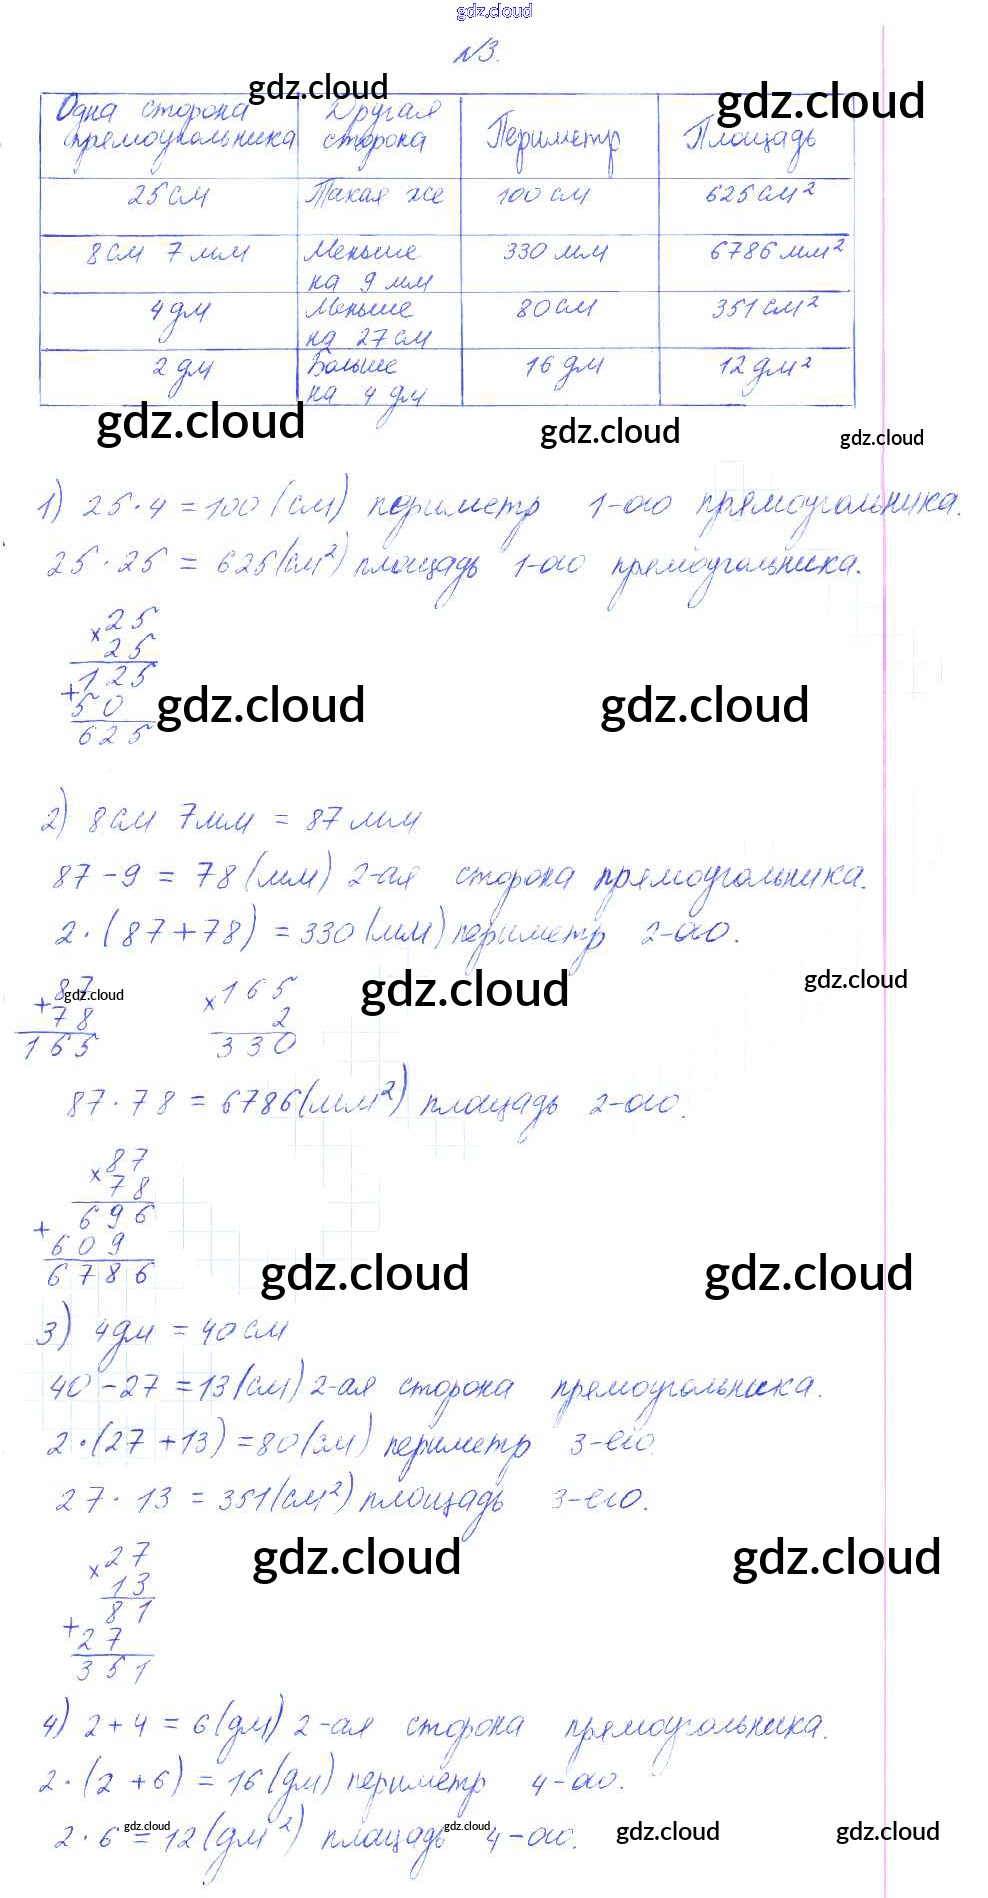 gdz.cloud
№3.
gdz.cloud
gdz.cloud
Одна сторона прямоугольника | Другая сторона | Периметр | Площадь
25 см | Такая же | 100 см | 625 см²
8 см 7 мм | Меньше на 9 мм | 330 мм | 6786 мм²
4 дм | Меньше на 27 см | 80 см | 351 см²
2 дм | Больше на 4 дм | 16 дм | 12 дм²
gdz.cloud
gdz.cloud
gdz.cloud
1) 25 · 4 = 100 (см) периметр 1-ого прямоугольника.
25 · 25 = 625 (см²) площадь 1-ого прямоугольника.
× 25
25
125
+ 50
625
gdz.cloud
gdz.cloud
2) 8 см 7 мм = 87 мм
87 - 9 = 78 (мм) 2-ая сторона прямоугольника.
2 · (87 + 78) = 330 (мм) периметр 2-ого.
+ 87 × 165
78 2
165 330
gdz.cloud
gdz.cloud
gdz.cloud
87 · 78 = 6786 (мм²) площадь 2-ого.
× 87
78
696
+ 609
6786
gdz.cloud
gdz.cloud
3) 4 дм = 40 см
40 - 27 = 13 (см) 2-ая сторона прямоугольника.
2 · (27 + 13) = 80 (см) периметр 3-его
27 · 13 = 351 (см²) площадь 3-его.
gdz.cloud
gdz.cloud
× 27
13
81
+ 27
351
4) 2 + 4 = 6 (дм) 2-ая сторона прямоугольника.
2 · (2 + 6) = 16 (дм) периметр 4-ого.
2 · 6 = 12 (дм²) площадь 4-ого.
gdz.cloud
gdz.cloud
gdz.cloud
gdz.cloud